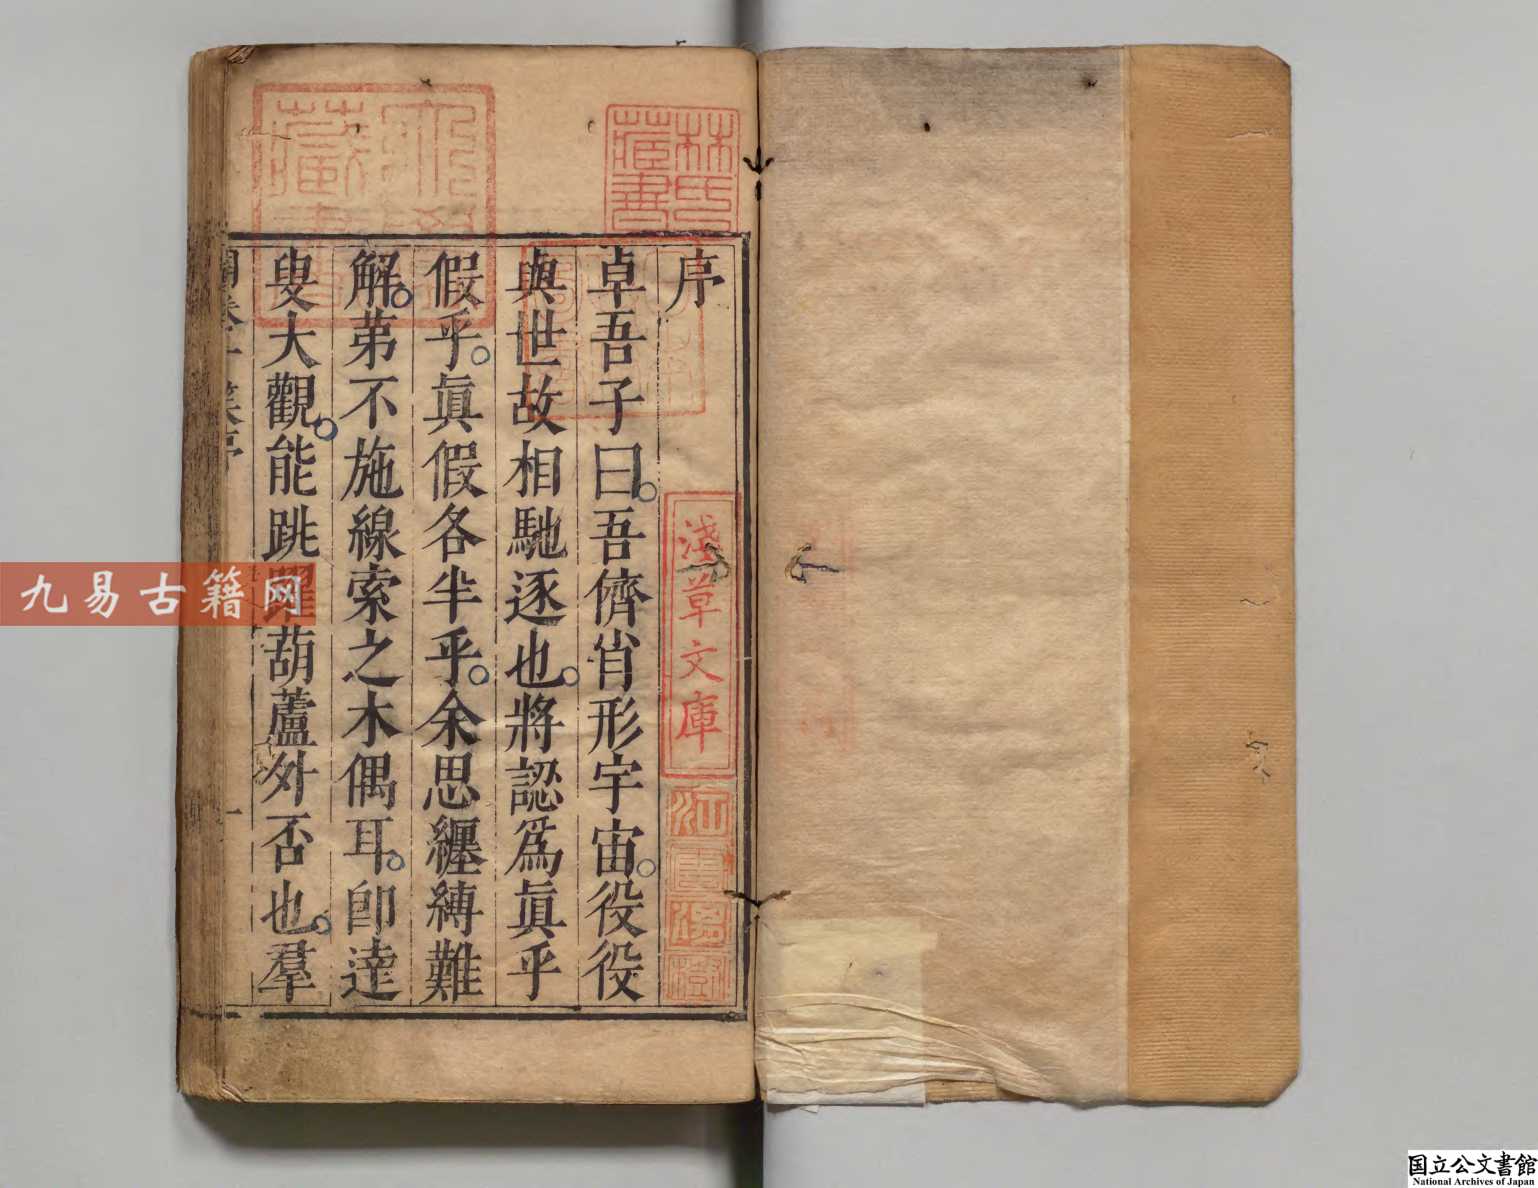 序
卓吾子曰。吾儕肖形宇宙。役役
與世故相馳逐也。將認爲眞乎
假乎。眞假各半乎。余思纒縛難
解。第不施線索之木偶耳。卽達
叟大觀。能跳躍葫蘆外否也。羣
開卷一笑序
一
林氏藏書
淺草文庫
江雲渭樹
九易古籍网
国立公文書館
National Archives of Japan